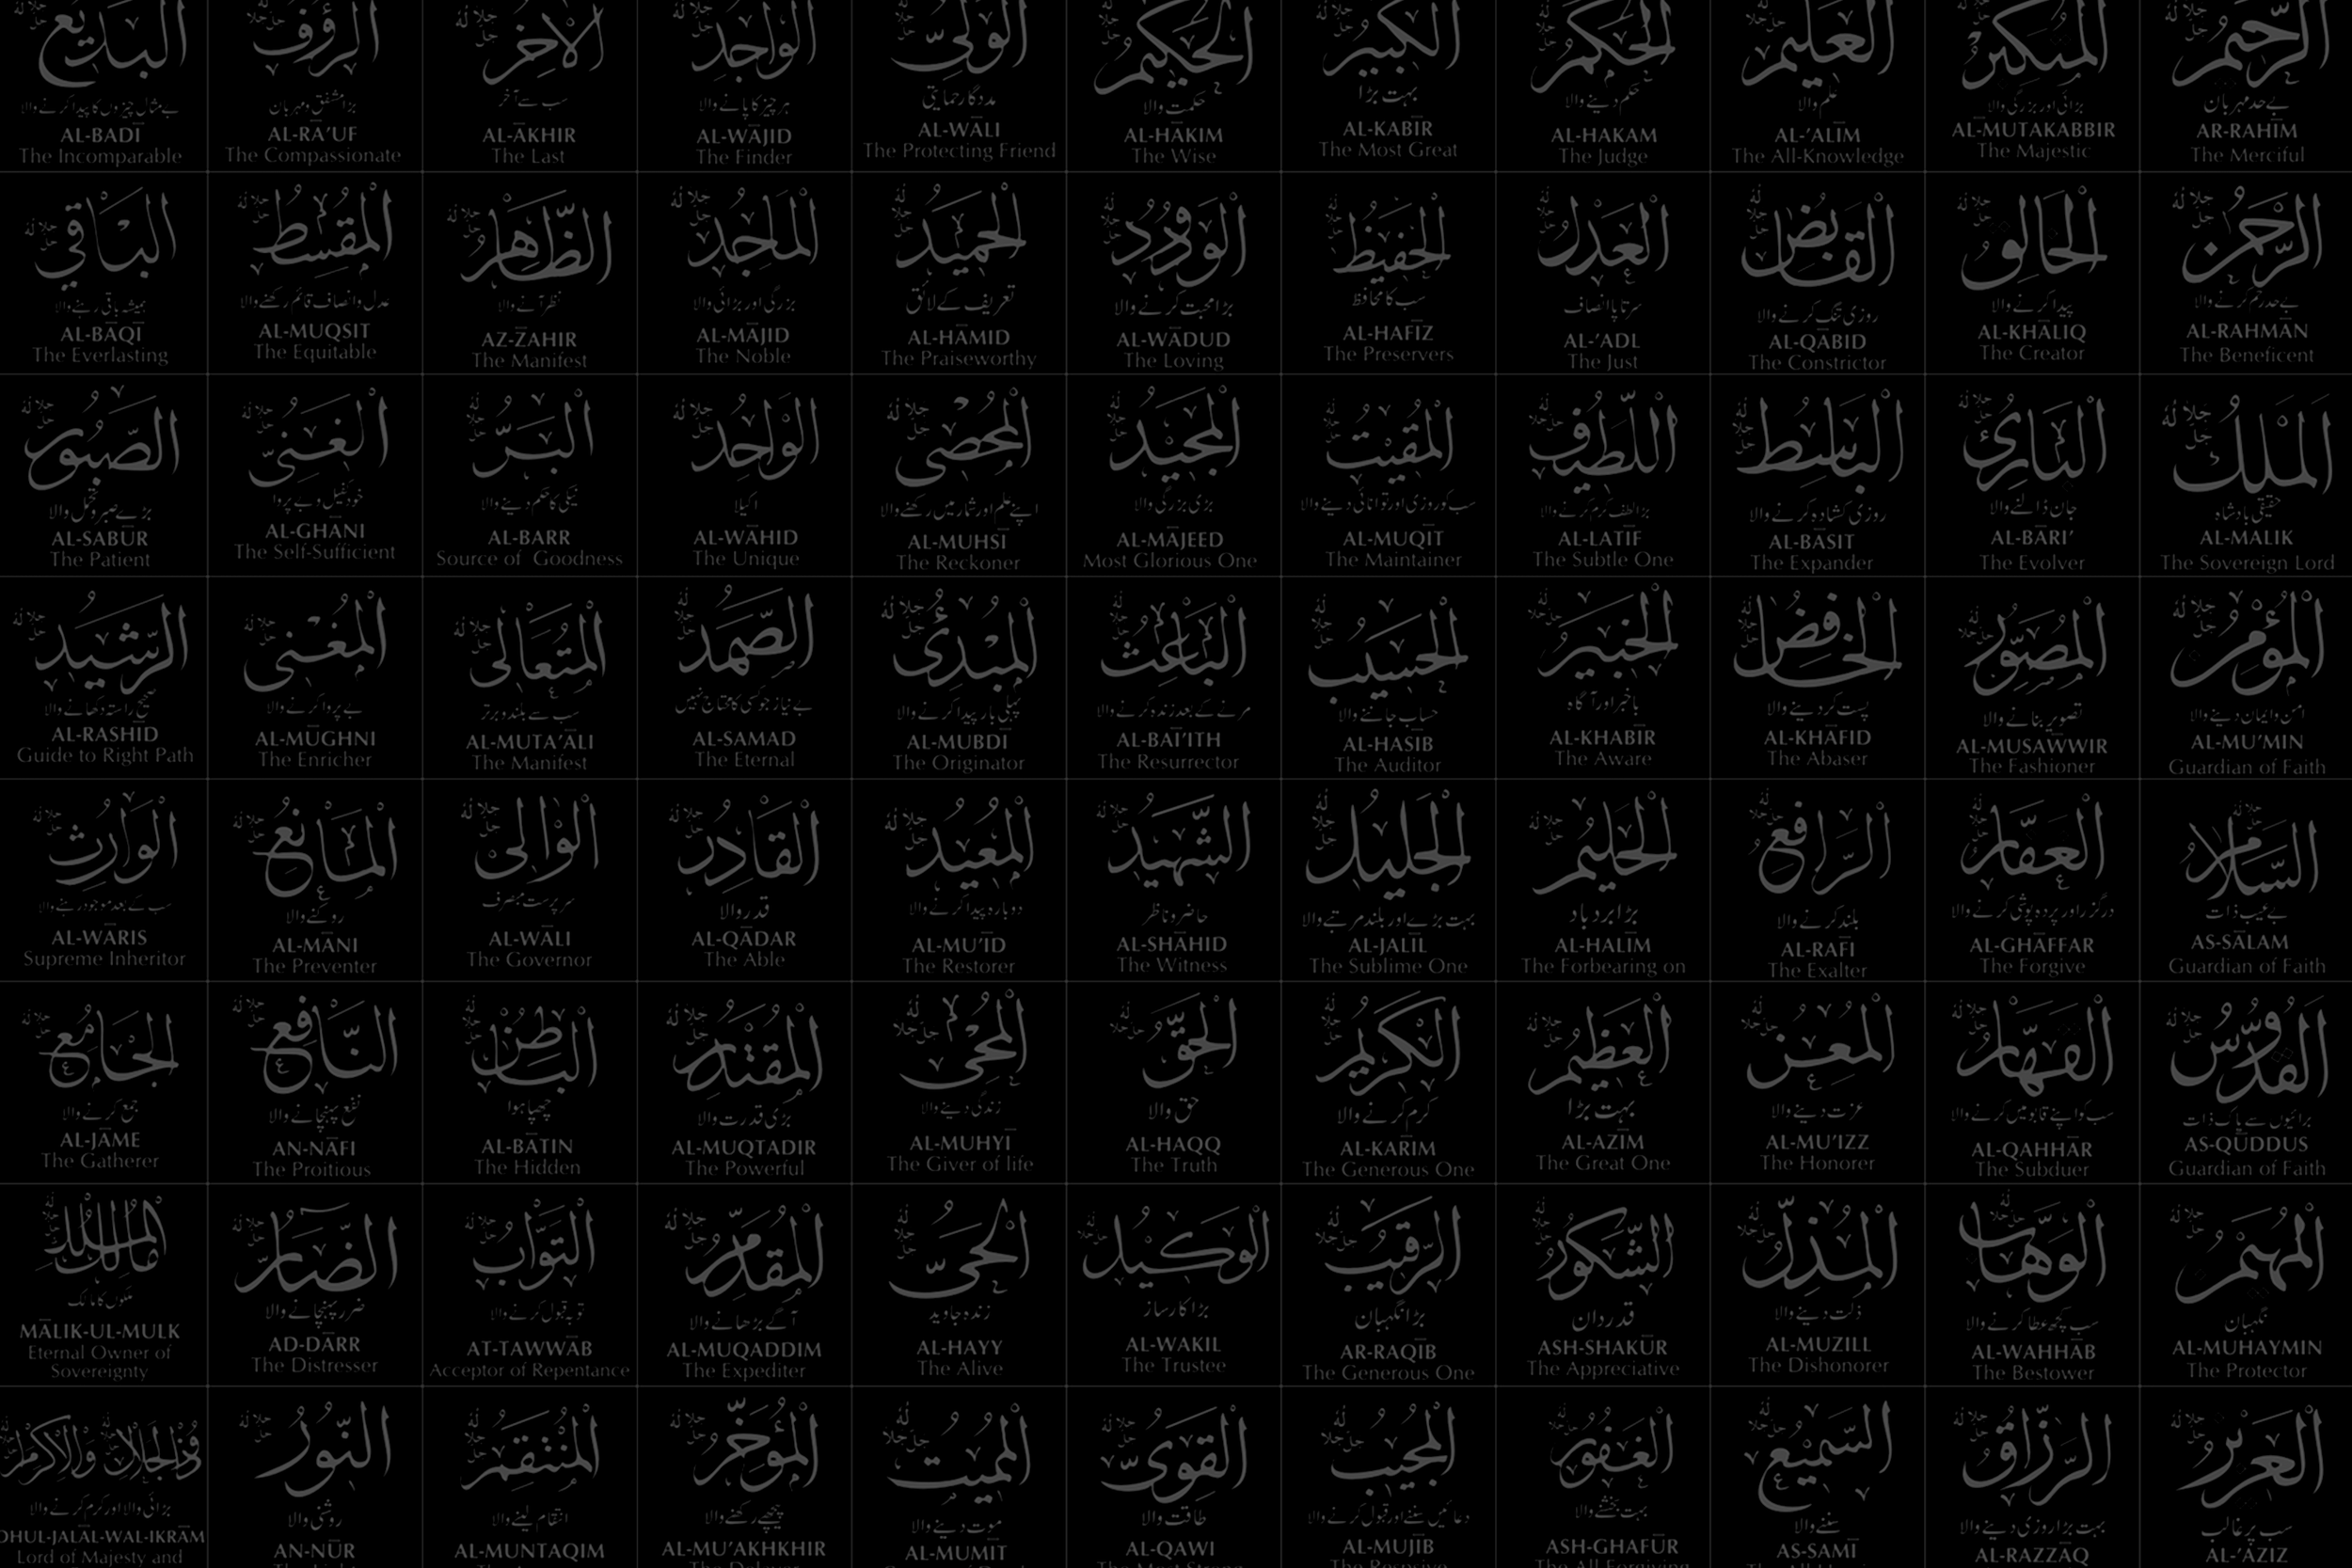 البديع
بے مثال چیزوں کا پیدا کرنے والا
AL-BADĪ
The Incomparable
الرؤف
بڑا مشفق و مہربان
AL-RA'UF
The Compassionate
الاخر
سب سے آخر
AL-ĀKHIR
The Last
الواجد
ہر چیز کا پانے والا
AL-WĀJID
The Finder
الولي
مددگار حمایتی
AL-WALI
The Protecting Friend
الحكيم
حکمت والا
AL-HAKIM
The Wise
الكبير
بہت بڑا
AL-KABIR
The Most Great
الحكم
حکم دینے والا
AL-HAKAM
The Judge
العليم
علم والا
AL-'ALIM
The All-Knowledge
المتكبر
بڑائی اور بزرگی والا
AL-MUTAKABBIR
The Majestic
الرحيم
بے حد مہربان
AR-RAHĪM
The Merciful
الباقي
ہمیشہ باقی رہنے والا
AL-BĀQĪ
The Everlasting
المقسط
عدل و انصاف قائم رکھنے والا
AL-MUQSIT
The Equitable
الظاهر
نظر آنے والا
AZ-ZAHIR
The Manifest
الماجد
بزرگی اور بڑائی والا
AL-MĀJID
The Noble
الحميد
تعریف کے لائق
AL-HAMID
The Praiseworthy
الودود
بڑا محبت کرنے والا
AL-WADUD
The Loving
الحفيظ
سب کا محافظ
AL-HAFĪZ
The Preservers
العدل
سرتاپا انصاف
AL-'ADL
The Just
القابض
روزی تنگ کرنے والا
AL-QĀBID
The Constrictor
الخالق
پیدا کرنے والا
AL-KHĀLIQ
The Creator
الرحمن
بے حد رحم کرنے والا
AL-RAHMĀN
The Beneficent
الصبور
بڑے صبر و تحمل والا
AL-SABŪR
The Patient
الغني
خود کفیل و بے پروا
AL-GHANI
The Self-Sufficient
البر
نیکی کا حکم دینے والا
AL-BARR
Source of Goodness
الواحد
اکیلا
AL-WĀHID
The Unique
المحصي
اپنے علم اور شمار میں رکھنے والا
AL-MUHSĪ
The Reckoner
المجيد
بڑی بزرگی والا
AL-MĀJEED
Most Glorious One
المقيت
سب کو روزی اور توانائی دینے والا
AL-MUQĪT
The Maintainer
اللطيف
بڑا لطف کرم کرنے والا
AL-LATĪF
The Subtle One
الباسط
روزی کشادہ کرنے والا
AL-BĀSIT
The Expander
البارئ
جان ڈالنے والا
AL-BĀRI'
The Evolver
الملك
حقیقی بادشاہ
AL-MALIK
The Sovereign Lord
الرشيد
صحیح راستہ دکھانے والا
AL-RASHĪD
Guide to Right Path
المغني
بے پروا کرنے والا
AL-MŪGHNI
The Enricher
المتعالي
سب سے بلند و برتر
AL-MUTA'ĀLI
The Manifest
الصمد
بے نیاز جو کسی کا محتاج نہیں
AL-SAMAD
The Eternal
المبدئ
پہلی بار پیدا کرنے والا
AL-MUBDĪ
The Originator
الباعث
مرنے کے بعد زندہ کرنے والا
AL-BAI'ITH
The Resurrector
الحسيب
حساب جاننے والا
AL-HASĪB
The Auditor
الخبير
باخبر اور آگاہ
AL-KHABĪR
The Aware
الخافض
پست کر دینے والا
AL-KHĀFID
The Abaser
المصور
تصویر بنانے والا
AL-MUSAWWIR
The Fashioner
المؤمن
امن و ایمان دینے والا
AL-MU'MIN
Guardian of Faith
الوارث
سب کے بعد موجود رہنے والا
AL-WĀRIS
Supreme Inheritor
المانع
روکنے والا
AL-MĀNI
The Preventer
الوالي
سرپرست متصرف
AL-WĀLI
The Governor
القادر
قدر والا
AL-QĀDAR
The Able
المعيد
دوبارہ پیدا کرنے والا
AL-MU'ĪD
The Restorer
الشهيد
حاضر و ناظر
AL-SHĀHID
The Witness
الجليل
بہت بڑے اور بلند مرتبے والا
AL-JALĪL
The Sublime One
الحليم
بڑا بردباد
AL-HALĪM
The Forbearing on
الرافع
بلند کرنے والا
AL-RAFĪ
The Exalter
الغفار
درگزر اور پردہ پوشی کرنے والا
AL-GHĀFFAR
The Forgive
السلام
بے عیب ذات
AS-SĀLAM
Guardian of Faith
الجامع
جمع کرنے والا
AL-JĀME
The Gatherer
النافع
نفع پہنچانے والا
AN-NĀFI
The Proitious
الباطن
چھپا ہوا
AL-BĀTIN
The Hidden
المقتدر
بڑی قدرت والا
AL-MUQTADIR
The Powerful
المحي
زندگی دینے والا
AL-MUHYĪ
The Giver of life
الحق
حق والا
AL-HAQQ
The Truth
الكريم
کرم کرنے والا
AL-KARĪM
The Generous One
العظيم
بہت بڑا
AL-AZĪM
The Great One
المعز
عزت دینے والا
AL-MU'IZZ
The Honorer
القهار
سب کو اپنے قابو میں کرنے والا
AL-QAHHĀR
The Subduer
القدوس
برائیوں سے پاک ذات
AS-QŪDDUS
Guardian of Faith
مالك الملك
ملکوں کا مالک
MĀLIK-UL-MULK
Eternal Owner of
Sovereignty
الضار
ضرر پہنچانے والا
AD-DĀRR
The Distresser
التواب
توبہ قبول کرنے والا
AT-TAWWĀB
Acceptor of Repentance
المقدم
آگے بڑھانے والا
AL-MUQADDIM
The Expediter
الحي
زندہ جاوید
AL-HAYY
The Alive
الوكيل
بڑا کارساز
AL-WAKIL
The Trustee
الرقيب
بڑا نگہبان
AR-RAQĪB
The Generous One
الشكور
قدردان
ASH-SHAKŪR
The Appreciative
المذل
ذلت دینے والا
AL-MUZILL
The Dishonorer
الوهاب
سب کچھ عطا کرنے والا
AL-WAHHĀB
The Bestower
المهيمن
نگہبان
AL-MUHAYMIN
The Protector
ذوالجلال والاكرام
بڑائی والا اور کرم کرنے والا
DHUL-JALĀL-WAL-IKRĀM
Lord of Majesty and
النور
روشنی والا
AN-NŪR
المنتقم
انتقام لینے والا
AL-MUNTAQIM
المؤخر
پیچھے رکھنے والا
AL-MU'AKHKHIR
المميت
موت دینے والا
AL-MUMĪT
القوي
طاقت والا
AL-QAWI
The Most Strong
المجيب
دعائیں سننے اور قبول کرنے والا
AL-MUJĪB
الغفور
بہت بخشنے والا
ASH-GHAFŪR
The All-Forgiving
السميع
سننے والا
AS-SAMĪ
الرزاق
بہت بڑا روزی دینے والا
AL-RAZZĀQ
العزيز
سب پر غالب
AL-'ĀZĪZ